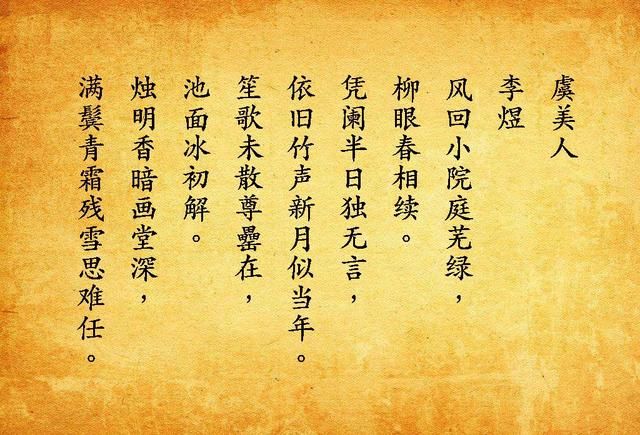 虞美人
李煜
风回小院庭芜绿，
柳眼春相续。
凭阑半日独无言，
依旧竹声新月似当年。
笙歌未散尊罍在，
池面冰初解。
烛明香暗画堂深，
满鬓青霜残雪思难任。